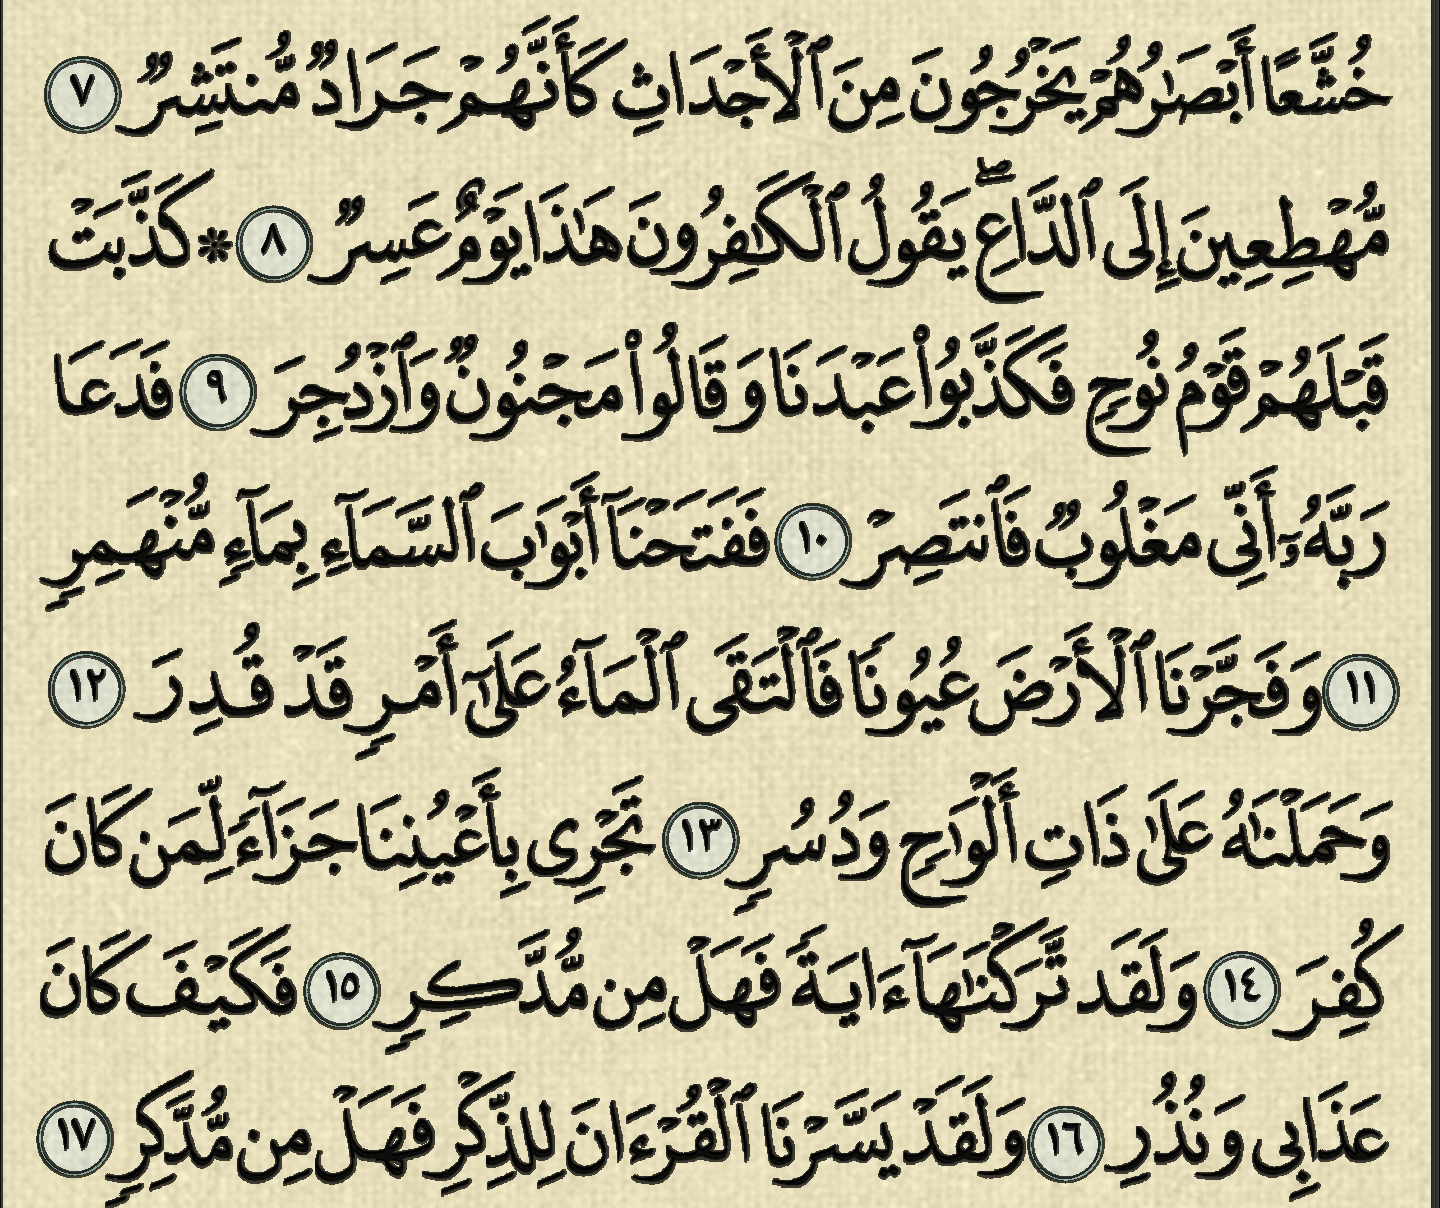 خُشَّعًا أَبْصَٰرُهُمْ يَخْرُجُونَ مِنَ ٱلْأَجْدَاثِ كَأَنَّهُمْ جَرَادٌ مُّنتَشِرٌ ٧
مُّهْطِعِينَ إِلَى ٱلدَّاعِ ۖ يَقُولُ ٱلْكَٰفِرُونَ هَٰذَا يَوْمٌ عَسِرٌ ٨ * كَذَّبَتْ
قَبْلَهُمْ قَوْمُ نُوحٍ فَكَذَّبُوا۟ عَبْدَنَا وَقَالُوا۟ مَجْنُونٌ وَٱزْدُجِرَ ٩ فَدَعَا
رَبَّهُۥٓ أَنِّى مَغْلُوبٌ فَٱنتَصِرْ ١٠ فَفَتَحْنَآ أَبْوَٰبَ ٱلسَّمَآءِ بِمَآءٍ مُّنْهَمِرٍ
١١ وَفَجَّرْنَا ٱلْأَرْضَ عُيُونًا فَٱلْتَقَى ٱلْمَآءُ عَلَىٰٓ أَمْرٍ قَدْ قُدِرَ ١٢
وَحَمَلْنَٰهُ عَلَىٰ ذَاتِ أَلْوَٰحٍ وَدُسُرٍ ١٣ تَجْرِى بِأَعْيُنِنَا جَزَآءً لِّمَن كَانَ
كُفِرَ ١٤ وَلَقَد تَّرَكْنَٰهَآ ءَايَةً فَهَلْ مِن مُّدَّكِرٍ ١٥ فَكَيْفَ كَانَ
عَذَابِى وَنُذُرِ ١٦ وَلَقَدْ يَسَّرْنَا ٱلْقُرْءَانَ لِلذِّكْرِ فَهَلْ مِن مُّدَّكِرٍ ١٧